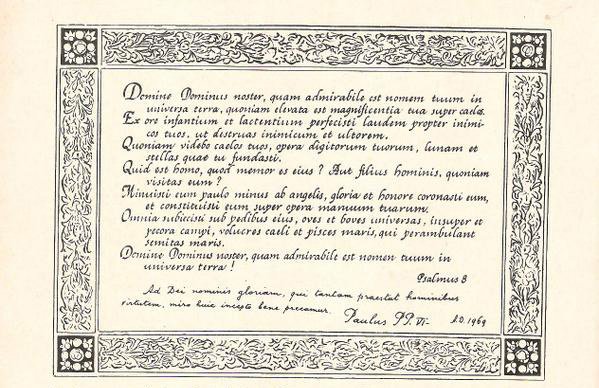 Domine Dominus noster, quam admirabile est nomen tuum in
universa terra, quoniam elevata est magnificentia tua super caelos.
Ex ore infantium et lactentium perfecisti laudem propter inimi-
cos tuos, ut destruas inimicum et ultorem.
Quoniam videbo caelos tuos, opera digitorum tuorum, lunam et
stellas quae tu fundasti.
Quid est homo, quod memor es eius? Aut filius hominis, quoniam
visitas eum?
Minuisti eum paulo minus ab angelis, gloria et honore coronasti eum,
et constituisti eum super opera manuum tuarum.
Omnia subiecisti sub pedibus eius, oves et boves universas, insuper et
pecora campi, volucres caeli et pisces maris, qui perambulant
semitas maris.
Domine Dominus noster, quam admirabile est nomen tuum in
universa terra!
Psalmus 8
Ad Dei nominis gloriam, qui tantam praestat hominibus
virtutem, miro huic incepto bene precamur.
Paulus PP. VI- A.D. 1969